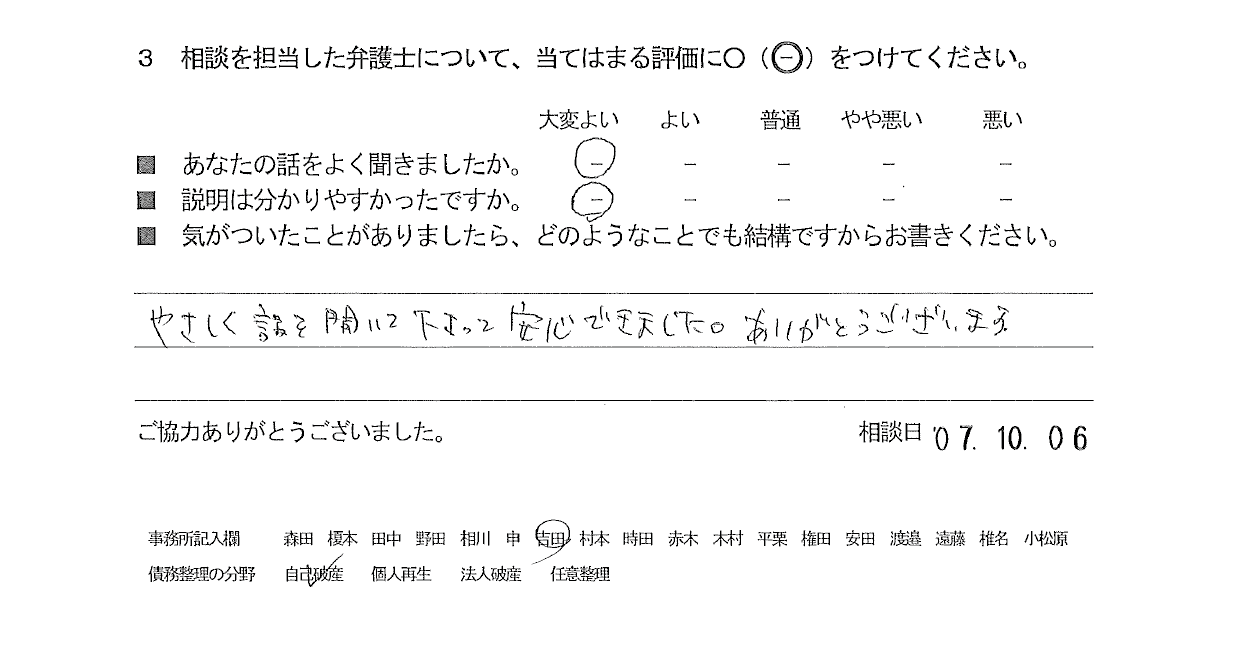 3 相談を担当した弁護士について、当てはまる評価に○（㊀）をつけてください。
大変よい よい 普通 やや悪い 悪い
■ あなたの話をよく聞きましたか。 − − − − −
■ 説明は分かりやすかったですか。 − − − − −
■ 気がついたことがありましたら、どのようなことでも結構ですからお書きください。
やさしく話を聞いて下さって安心できました。ありがとうございます
ご協力ありがとうございました。 相談日 '07.10.06
事務所記入欄 森田 榎本 田中 野田 相川 申 吉田 村本 時田 赤木 木村 平栗 権田 安田 渡邉 遠藤 椎名 小松原
債務整理の分野 自己破産 個人再生 法人破産 任意整理